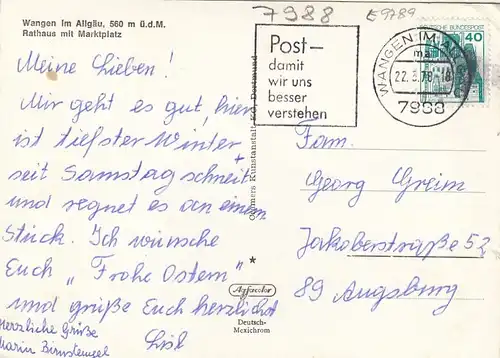 Wangen im Allgäu, 560 m ü.d.M.
Rathaus mit Marktplatz
7988
E9789
Meine Lieben!
Mir geht es gut, hier
ist tiefster Winter,
seit Samstag schneit +
und regnet es an einem
Stück. Ich wünsche
Euch „Frohe Ostern"
und grüße Euch herzlichst
Lisl
Herzliche Grüße
Post–
damit
wir uns
besser
verstehen
WANGEN IM
22.3.78-18
7988
DEUTSCHE BUNDESPOST
40
Fam.
Georg Greim
Jakoberstraße 52
89 Augsburg
*
Agfacolor
Deutsch-
Mexichrom